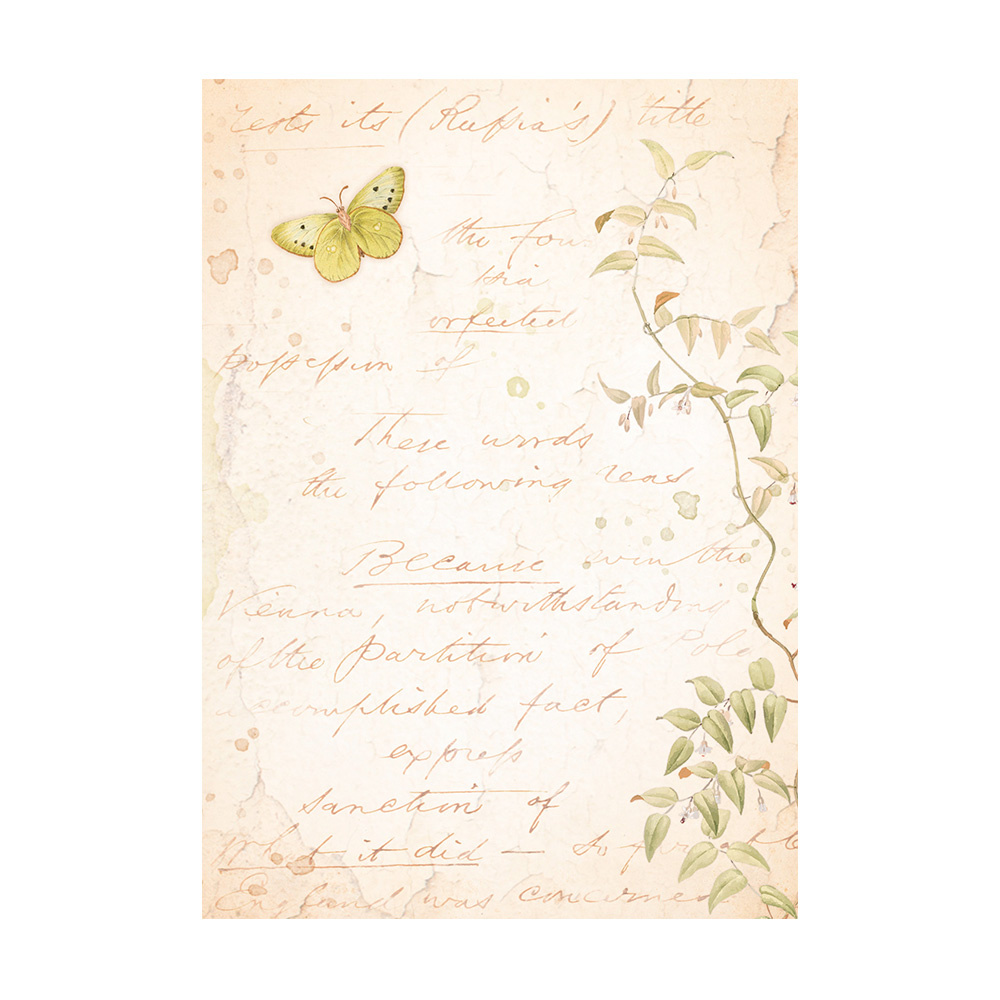 rests its (Russia's) title
the four
sia
orfected
possession of
These words
the following reas
Because even the
Vienna, notwithstanding
of the Partition of Pola
accomplished fact,
express
sanction of
What it did — so far at
England was concerned